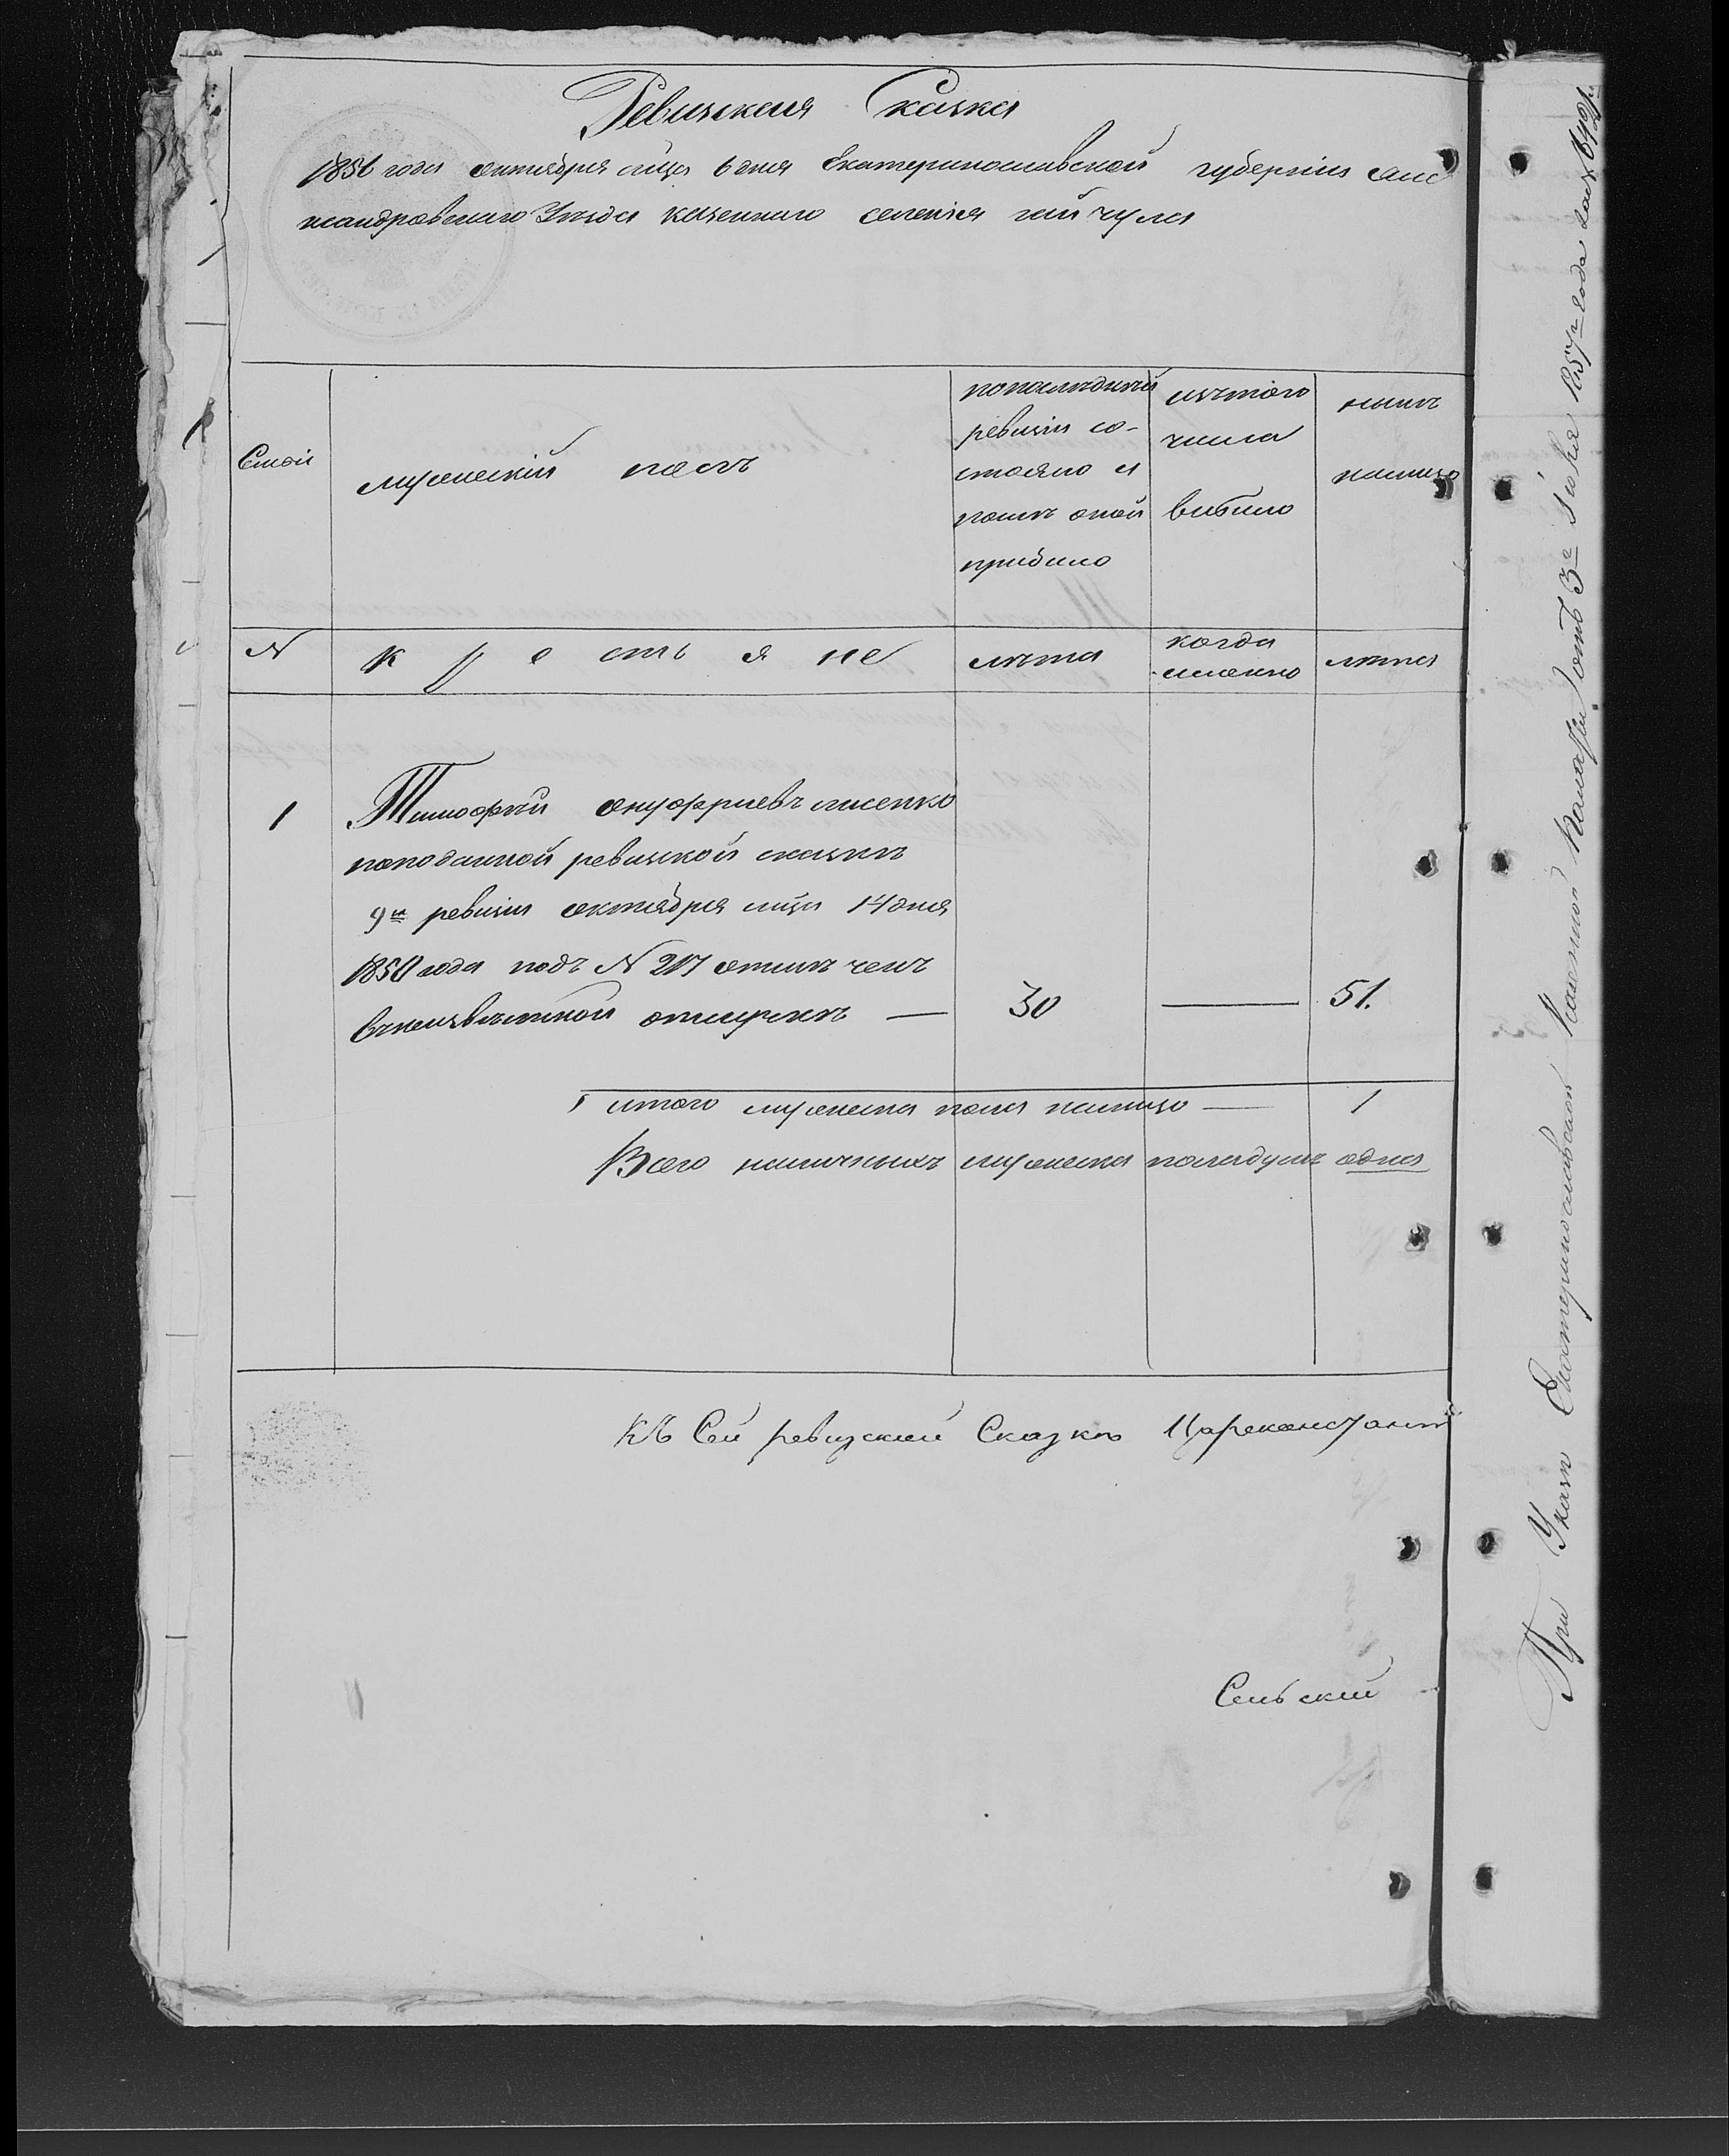 Ревизская Сказка
1856 года октября мца 6 дня Екатеринославской губернии алек
сандровскаго Уезда казенного селения гайчула
Семьи
мужеский полъ
попоследней
ревизии со-
стояло и
после оной
прибыло
изътого
числа
выбыло
ныне
налицо
N
крестьяне
лета
когда
именно
лета
1
Тимофей онуфриевъ лисенко
поподанной ревизкой сказке
9й ревизии октября мца 14 дня
1850 года подъ N 217 отмеченъ
вънеизвестной отлучке —
30
—
51.
итого мужеска пола налицо — 1
Всего наличныхъ мужеска пола душъ одна
Къ Сей ревизской Сказкѣ Цареконстант
Сельский
При Указе Екатеринославской Казенной Палаты отъ 3го Июня 1857го года за №